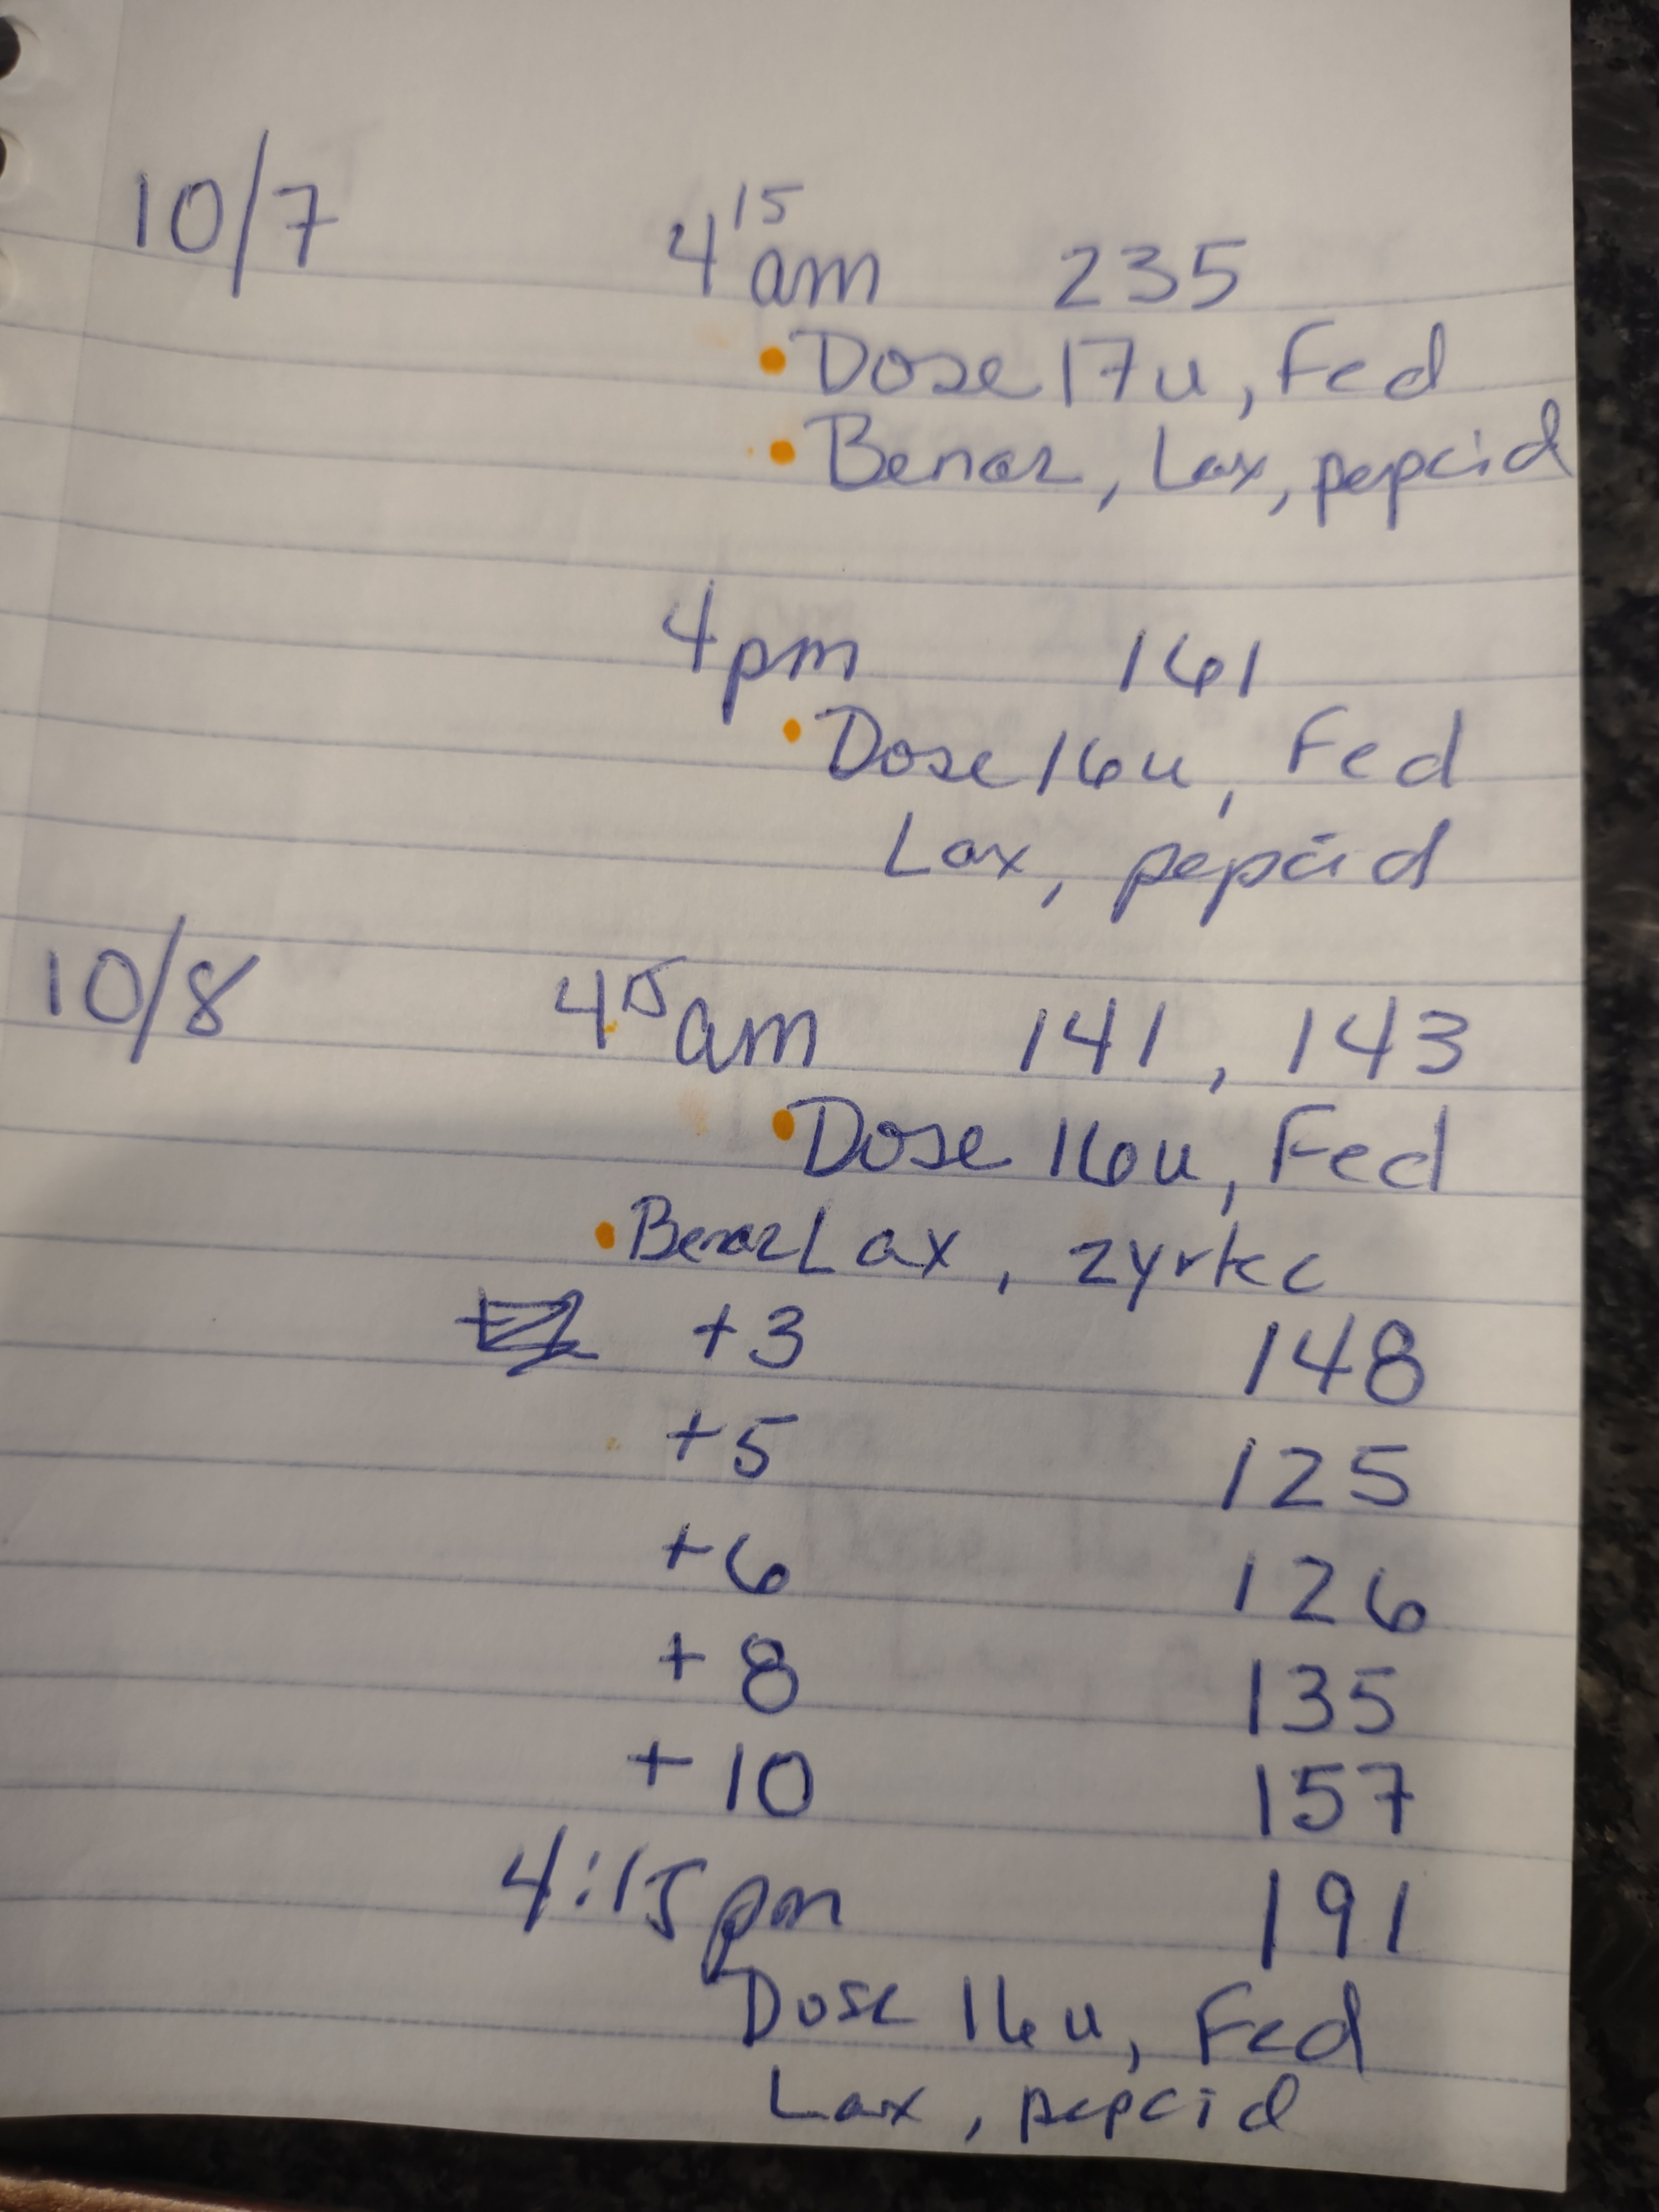 10/7 4¹⁵ am 235
• Dose 17u, Fed
• Benaz, Lax, pepcid
4pm 161
• Dose 16u, Fed
Lax, pepcid
10/8 4¹⁵ am 141, 143
• Dose 16u, Fed
• Benaz Lax, zyrtec
+3 148
+5 125
+6 126
+8 135
+10 157
4:15 pm 191
Dose 16u, Fed
Lax, pepcid